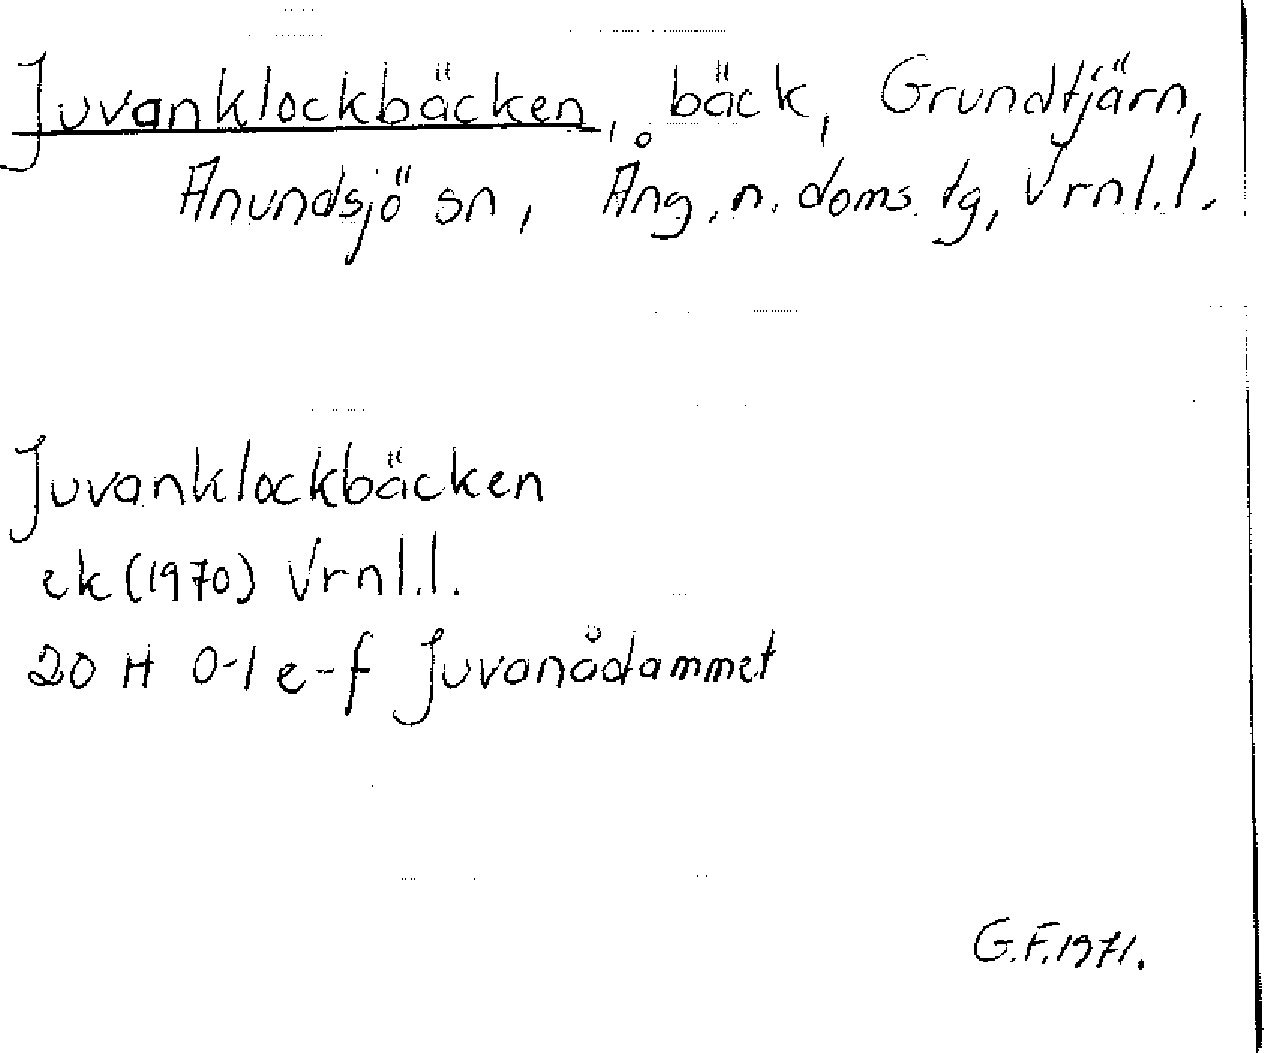 Juvanklockbäcken, bäck, Grundtjärn,
Anundsjö sn, Ång. n. doms. tg, Vrnl.l.
Juvanklockbäcken
ek (1970) Vrnl.l.
20 H 0-1 e-f Juvanådammet
G.F. 1971.